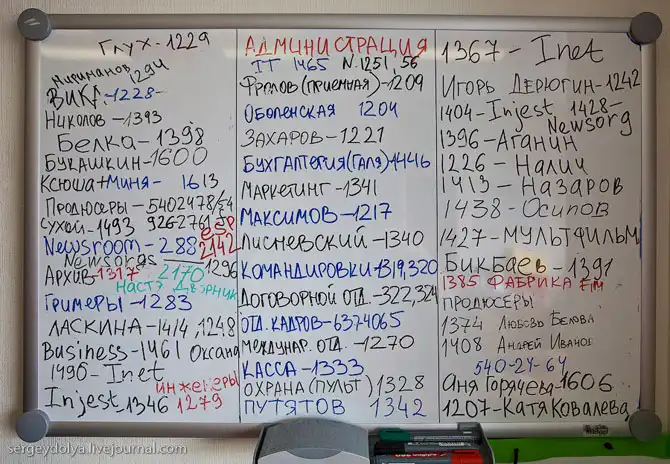 Глух - 1229
Нириманов 1294
ВИКА - 1228 -
Николов - 1393
Белка - 1398
БУКАШКИН - 1600
Ксюша + Миня - 1613
Продюсеры - 5402478/54
Сухой - 1493 926-2761
esp
2142
Newsroom - 288
Newsorgs 1296
Архив - 1317 2170
Настя Дворник
Гримеры - 1283
ЛАСКИНА - 1414, 1248
Business - 1461 Оксана
1490 - Inet
инженеры
Injest 1346 1279
АДМИНИСТРАЦИЯ
IT 1465 N.1251, 56
Фролов (приемная) - 1209
Оболенская 1204
ЗАХАРОВ - 1221
Бухгалтерия (Галя) - 1446
Маркетинг - 1341
МАКСИМОВ - 1217
Лисневский - 1340
КОМАНДИРОВКИ - 1319,320
Договорной отд. - 322, 324
отд. кадров - 6374065
Междунар. отд. - 1270
КАССА - 1333
ОХРАНА (ПУЛЬТ) 1328
ПУТЯТОВ 1342
1367 - Inet
Игорь Дерюгин - 1242
1404 - Injest 1428 -
Newsorg
1396 - Аганин
1226 - Налич
1413 - Назаров
1438 - Осипов
1427 - МУЛЬТФИЛЬМ
Бикбаев - 1391
1385 ФАБРИКА FIM
продюсеры
1374 Любовь Белова
1408 Андрей Иванов
540-24-64
Аня Горячева - 1606
1207 - Катя Ковалева
sergeydolya.livejournal.com